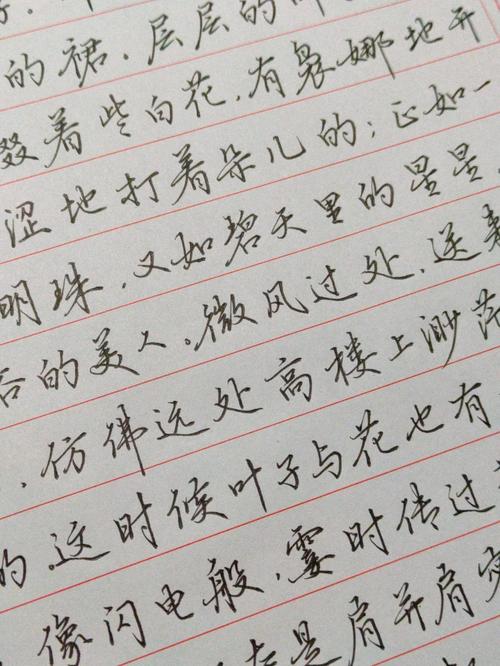 的裙。层层的
缀着些白花，有袅娜地开
涩地打着朵儿的；正如一
明珠，又如碧天里的星星，
浴的美人。微风过处，送来
，仿佛远处高楼上渺茫
的。这时候叶子与花也有
像闪电般，霎时传过
是肩并肩